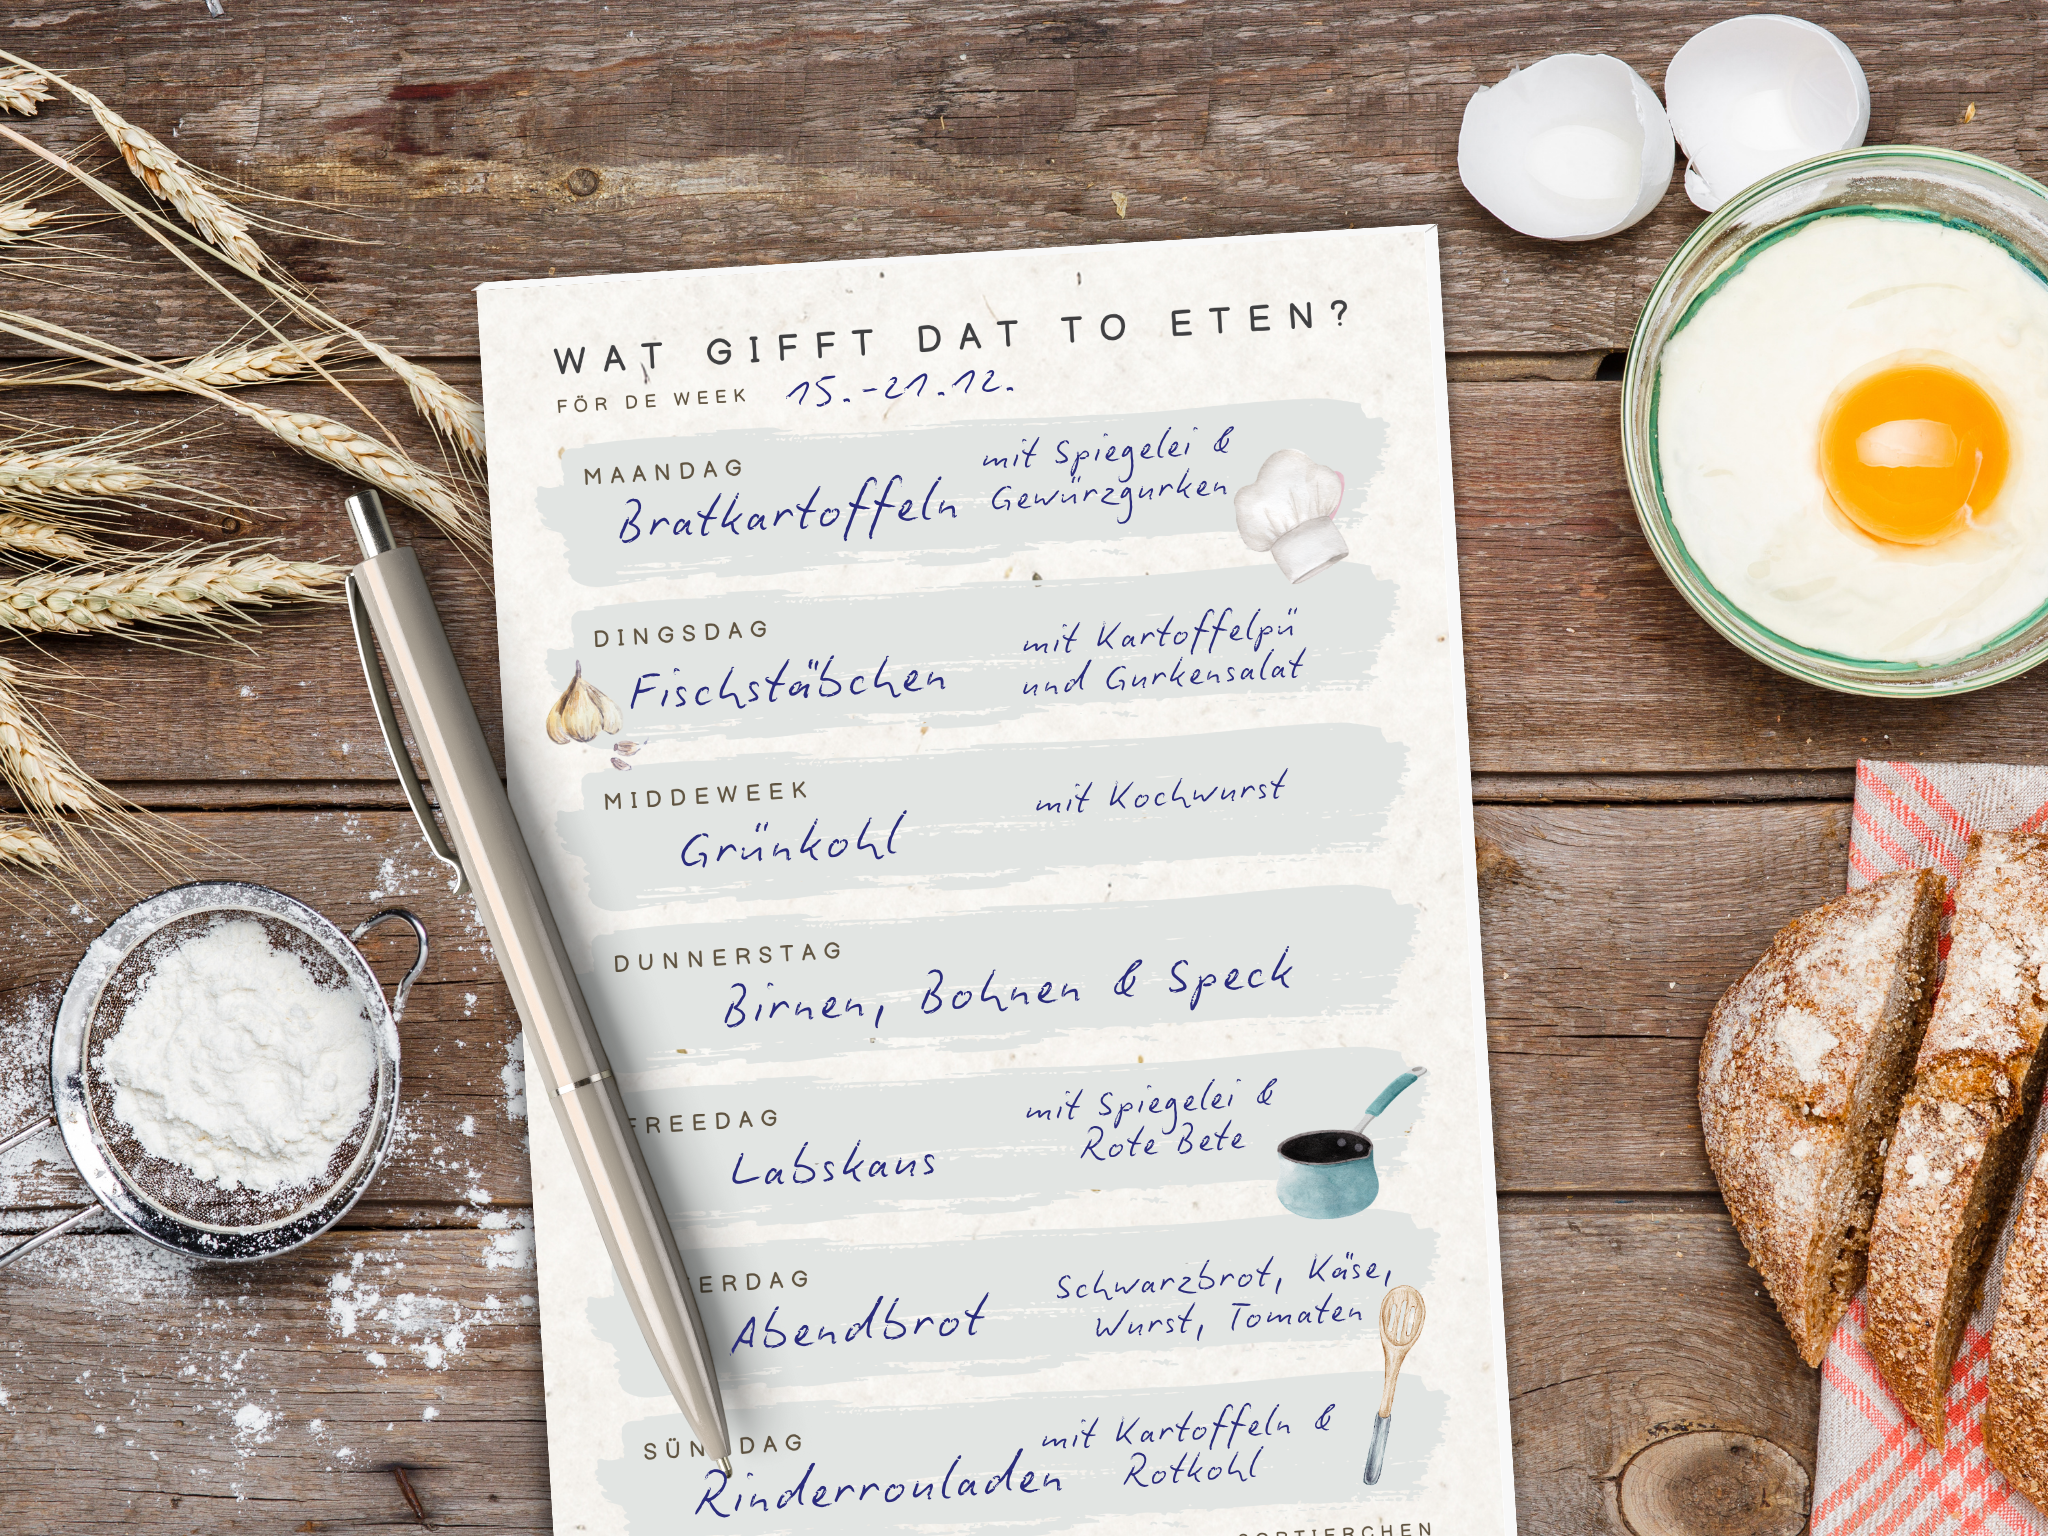 WAT GIFFT DAT TO ETEN?
FÖR DE WEEK 15.-21.12.
MAANDAG
Bratkartoffeln mit Spiegelei &
Gewürzgurken
DINGSDAG
Fischstäbchen mit Kartoffelpü
und Gurkensalat
MIDDEWEEK
Grünkohl mit Kochwurst
DUNNERSTAG
Birnen, Bohnen & Speck
FREEDAG
Labskaus mit Spiegelei &
Rote Bete
ERDAG
Abendbrot Schwarzbrot, Käse,
Wurst, Tomaten
SÜNDAG
Rinderrouladen mit Kartoffeln &
Rotkohl